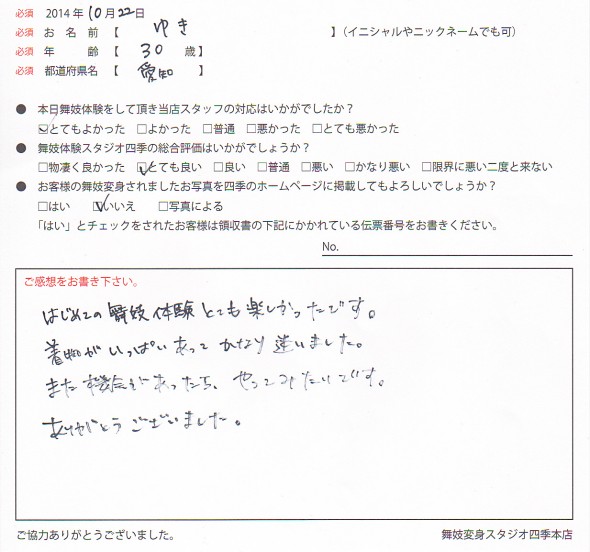 必須 2014年10月22日
必須 お名前【 ゆき 】(イニシャルやニックネームでも可)
必須 年齢【 30 歳】
必須 都道府県名【 愛知 】
● 本日舞妓体験をして頂き当店スタッフの対応はいかがでしたか？
☑とてもよかった □よかった □普通 □悪かった □とても悪かった
● 舞妓体験スタジオ四季の総合評価はいかがでしょうか？
□物凄く良かった ☑とても良い □良い □普通 □悪い □かなり悪い □限界に悪い二度と来ない
● お客様の舞妓変身されましたお写真を四季のホームページに掲載してもよろしいでしょうか？
□はい ☑いいえ □写真による
「はい」とチェックをされたお客様は領収書の下記にかかれている伝票番号をお書きください。
No.
ご感想をお書き下さい。
はじめての舞妓体験とても楽しかったです。
着物がいっぱいあってかなり迷いました。
また機会があったら、やってみたいです。
ありがとうございました。
ご協力ありがとうございました。
舞妓変身スタジオ四季本店